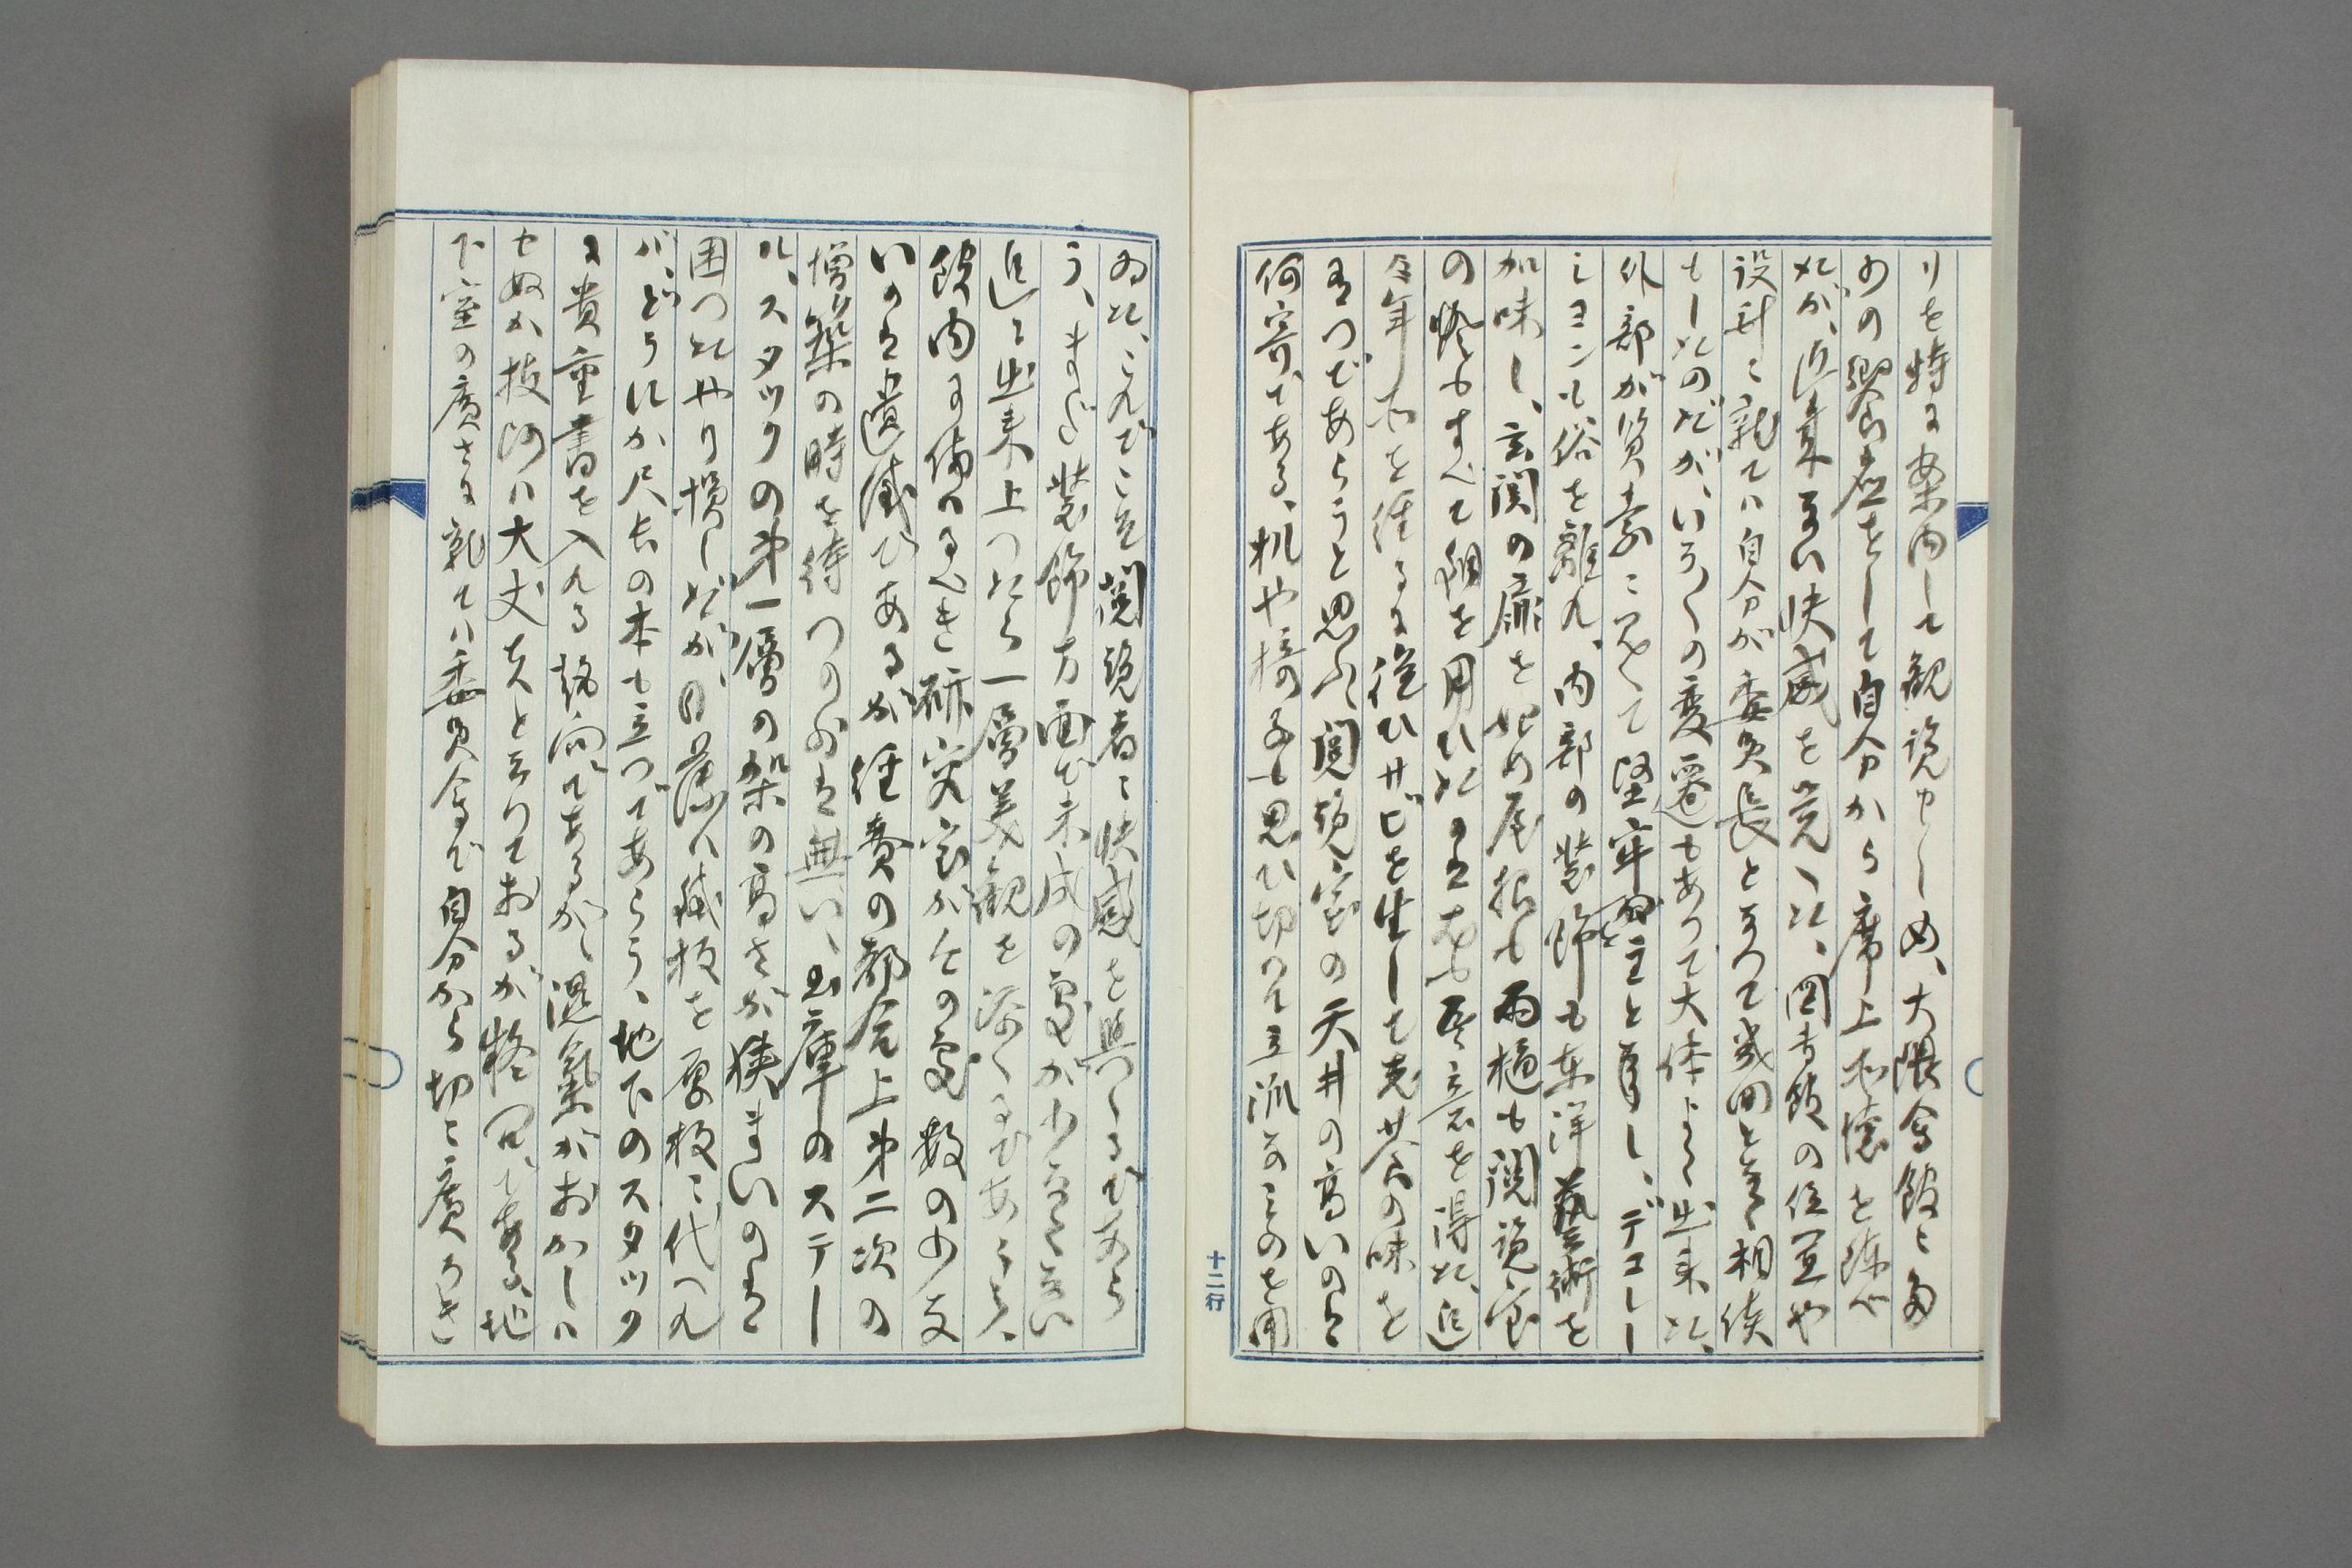 りを特に案内して観覧せしめ、大隈会館と多
少の饗応をして自分から席上所懐を陳べ
たが、近来ない快感を覚へた、図書館の位置や
設計に就ては自分が委員長となつて幾回となく相談
もしたのだが、いろ〱の変遷もありて大体よく出来た、
外部が質素にして堅牢を主と為し、デコレー
ションも俗を離れ、内部の装飾も東洋藝術を
加味し、玄関の扉を始め屋根も雨樋も閲覧室
の燈もすべて銅を用ひたのは尤も吾意を得た、追
々年所を経るに従ひサビを生じて其共の味を
有つであらうと思ふ、閲覧室の天井の高いのは
何寄である、机や椅子も思ひ切つて立派なものを用
十二行
ゐた、これでこそ閲覧者に快感を與へるであら
う、まだ装飾方面で未成の処が少なくない
追々出来上つたら一層美観を添へるであらう、
館内に備ふるべき研究室がその処数の少な
いのは遺憾であるが経費の都合上第二次の
増築の時を待つの外は無い、書庫のステー
ル、スタックの第一層の架の高さが狭まいのは
困つたやり損じだが、目藻ハ鐵板を厚板に代へれ
バ、どうにか尺長の本も立つであらう、地下のスタック
に貴重書を入れる趣向であるが、湿気がおかしハ
せぬか技師ハ大丈夫と云つておるが疑問である、地
下室の廣さに就てハ委員会で自分から切に廣かるべき